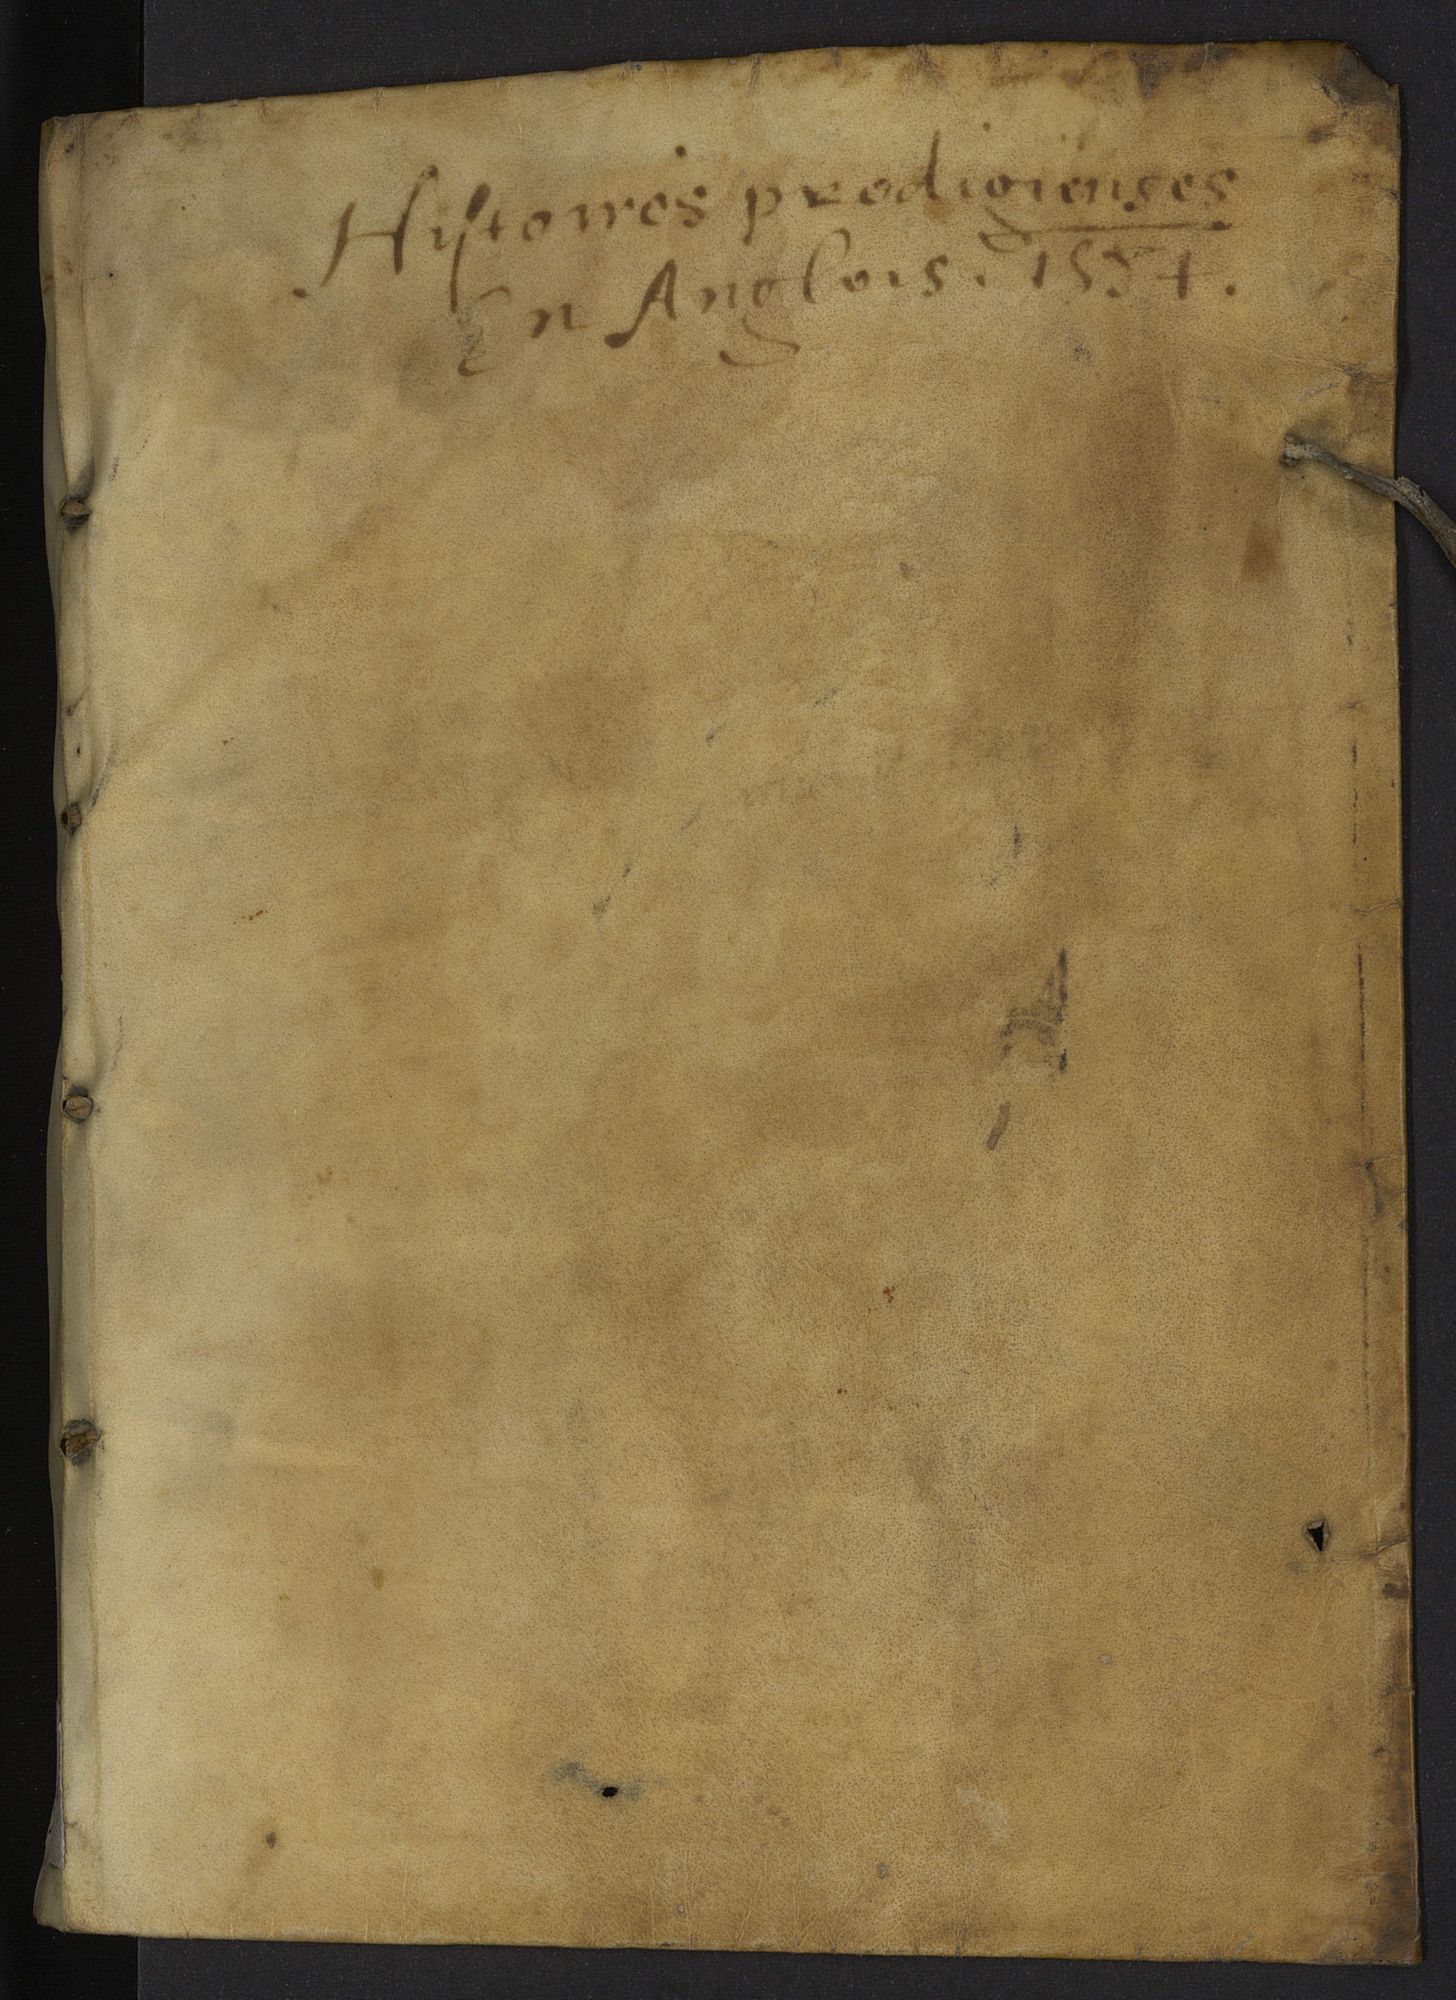 Hystoires prodigienses
En Anglois. 1554.